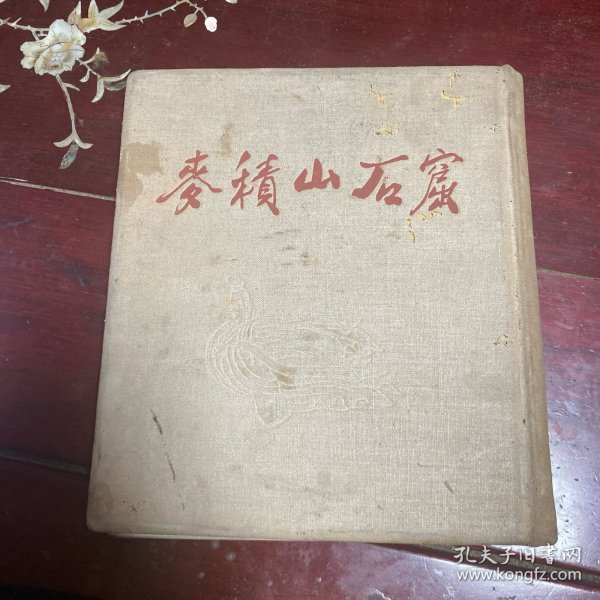 麥積山石窟
孔夫子旧书网
www.kongfz.com